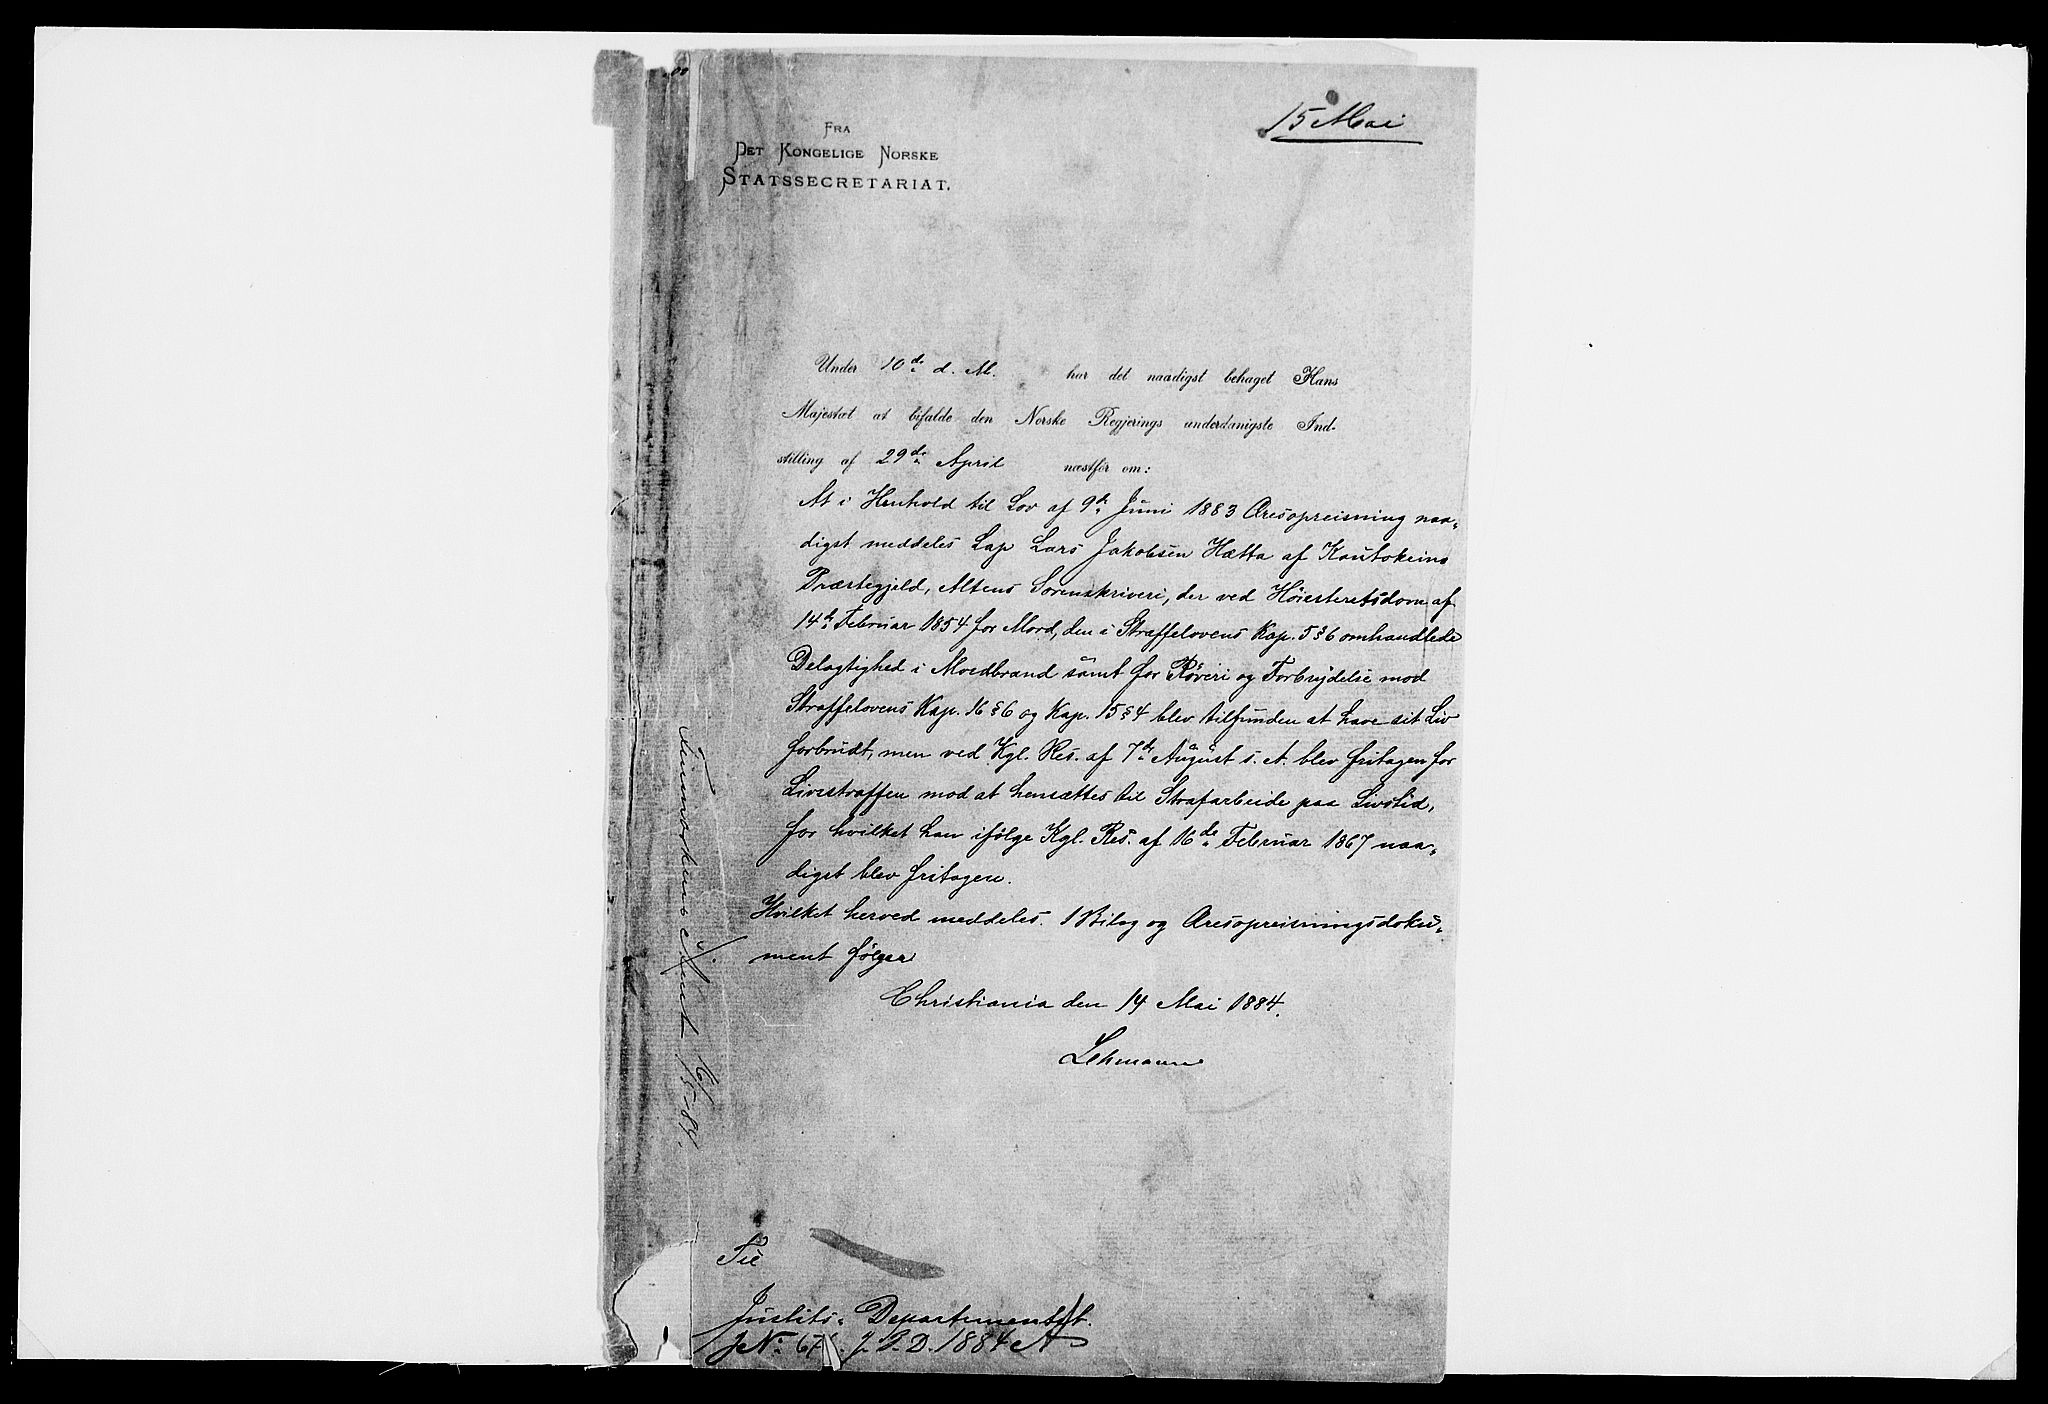 15 Mai
Fra
Det Kongelige Norske
Statssecretariat.
Under 10de d. M. har det naadigst behaget Hans
Majestæt at bifalde den Norske Regjerings underdanigste Ind-
stilling af 29de April næstfør om:
At i Henhold til Lov af 9de Juni 1883 Æresopreisning naa-
digst meddeles Lap Lars Jakobsen Hætta af Kautokeino
Præstegjeld, Altens Sorenskriveri, der ved Høiesteretsdom af
14de Februar 1854 for Mord, den i Straffelovens Kap. 5 § 6 omhandlede
Delagtighed i Mordbrand samt for Røveri og Forbrydelse mod
Straffelovens Kap. 16 § 6 og Kap. 15 § 4 blev tilfunden at have sit Liv
forbrudt, men ved Kgl. Res. af 7de August s. A. blev fritagen for
Livsstraffen mod at hensættes til Strafarbeide paa Livstid,
for hvilket han ifølge Kgl. Res. af 16de Februar 1867 naa-
digst blev fritagen.
Hvilket herved meddeles. 1 Bilag og Æresopreisningsdoku-
ment følger
Christiania den 14 Mai 1884.
Lehmann
Finmarkens Amt 16/5-84.
Til
Justits-Departementet.
J. D. 1884 A